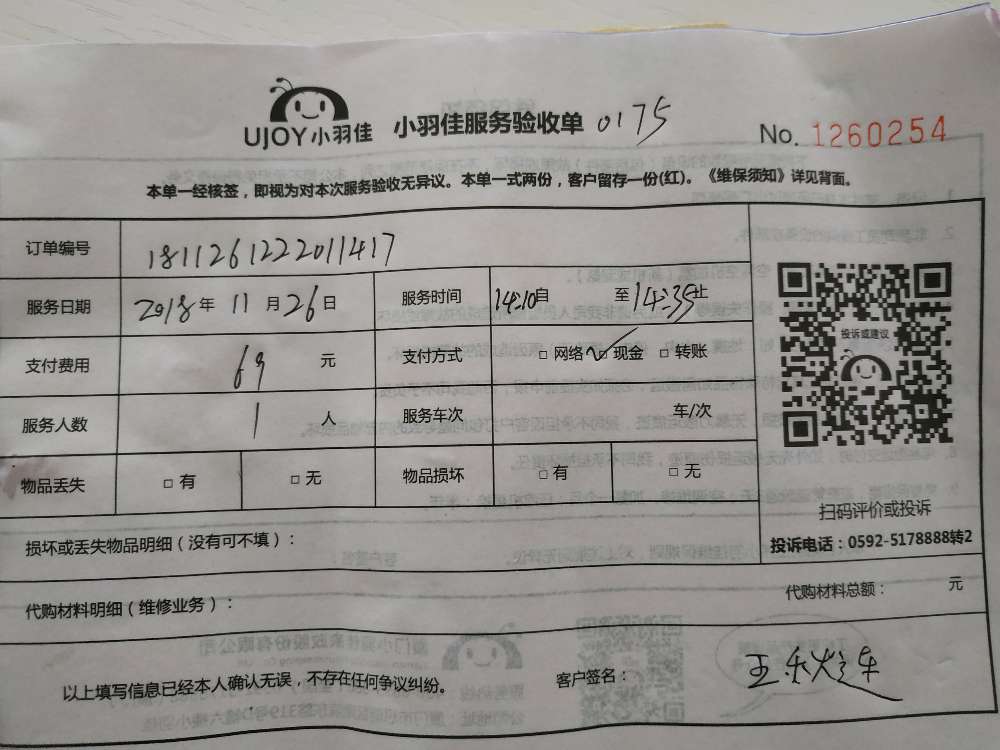 UJOY小羽佳 小羽佳服务验收单 0175
No. 1260254
本单一经核签，即视为对本次服务验收无异议。本单一式两份，客户留存一份(红)。《维保须知》详见背面。
订单编号 1811261222011417
服务日期 2018年11月26日 服务时间 14:10自 至14:35止
支付费用 69 元 支付方式 □ 网络 ✓□ 现金 □ 转账
服务人数 1 人 服务车次 车/次
物品丢失 □ 有 □ 无 物品损坏 □ 有 □ 无
投诉或建议
扫码评价或投诉
投诉电话：0592-5178888转2
损坏或丢失物品明细（没有可不填）：
代购材料明细（维修业务）： 代购材料总额： 元
以上填写信息已经本人确认无误，不存在任何争议纠纷。 客户签名：